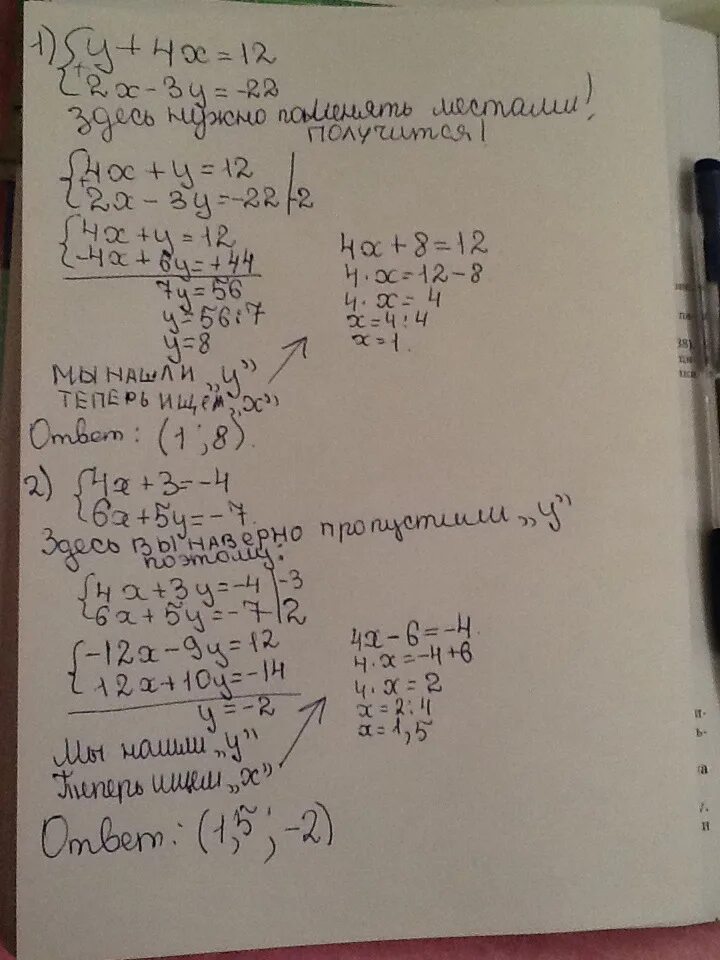 1) { y + 4x = 12
{ 2x - 3y = -22
Здесь нужно поменять местами!
получится!
{ 4x + y = 12
{ 2x - 3y = -22 | -2
{ 4x + y = 12
{ -4x + 6y = +44
7y = 56
y = 56 : 7
y = 8
4x + 8 = 12
4 · x = 12 - 8
4 · x = 4
x = 4 : 4
x = 1.
МЫ НАШЛИ „y”
ТЕПЕРЬ ИЩЕМ „x”
Ответ: (1 ; 8).
2) { 4x + 3 = -4
{ 6x + 5y = -7.
Здесь вы наверно пропустили „y”
поэтому:
{ 4x + 3y = -4 | -3
{ 6x + 5y = -7 | 2
{ -12x - 9y = 12
{ 12x + 10y = -14
y = -2
4x - 6 = -4.
4 · x = -4 + 6
4 · x = 2
x = 2 : 4
x = 1,5
Мы нашли „y”
Типерь ищем „x”
Ответ: (1,5 ; -2)